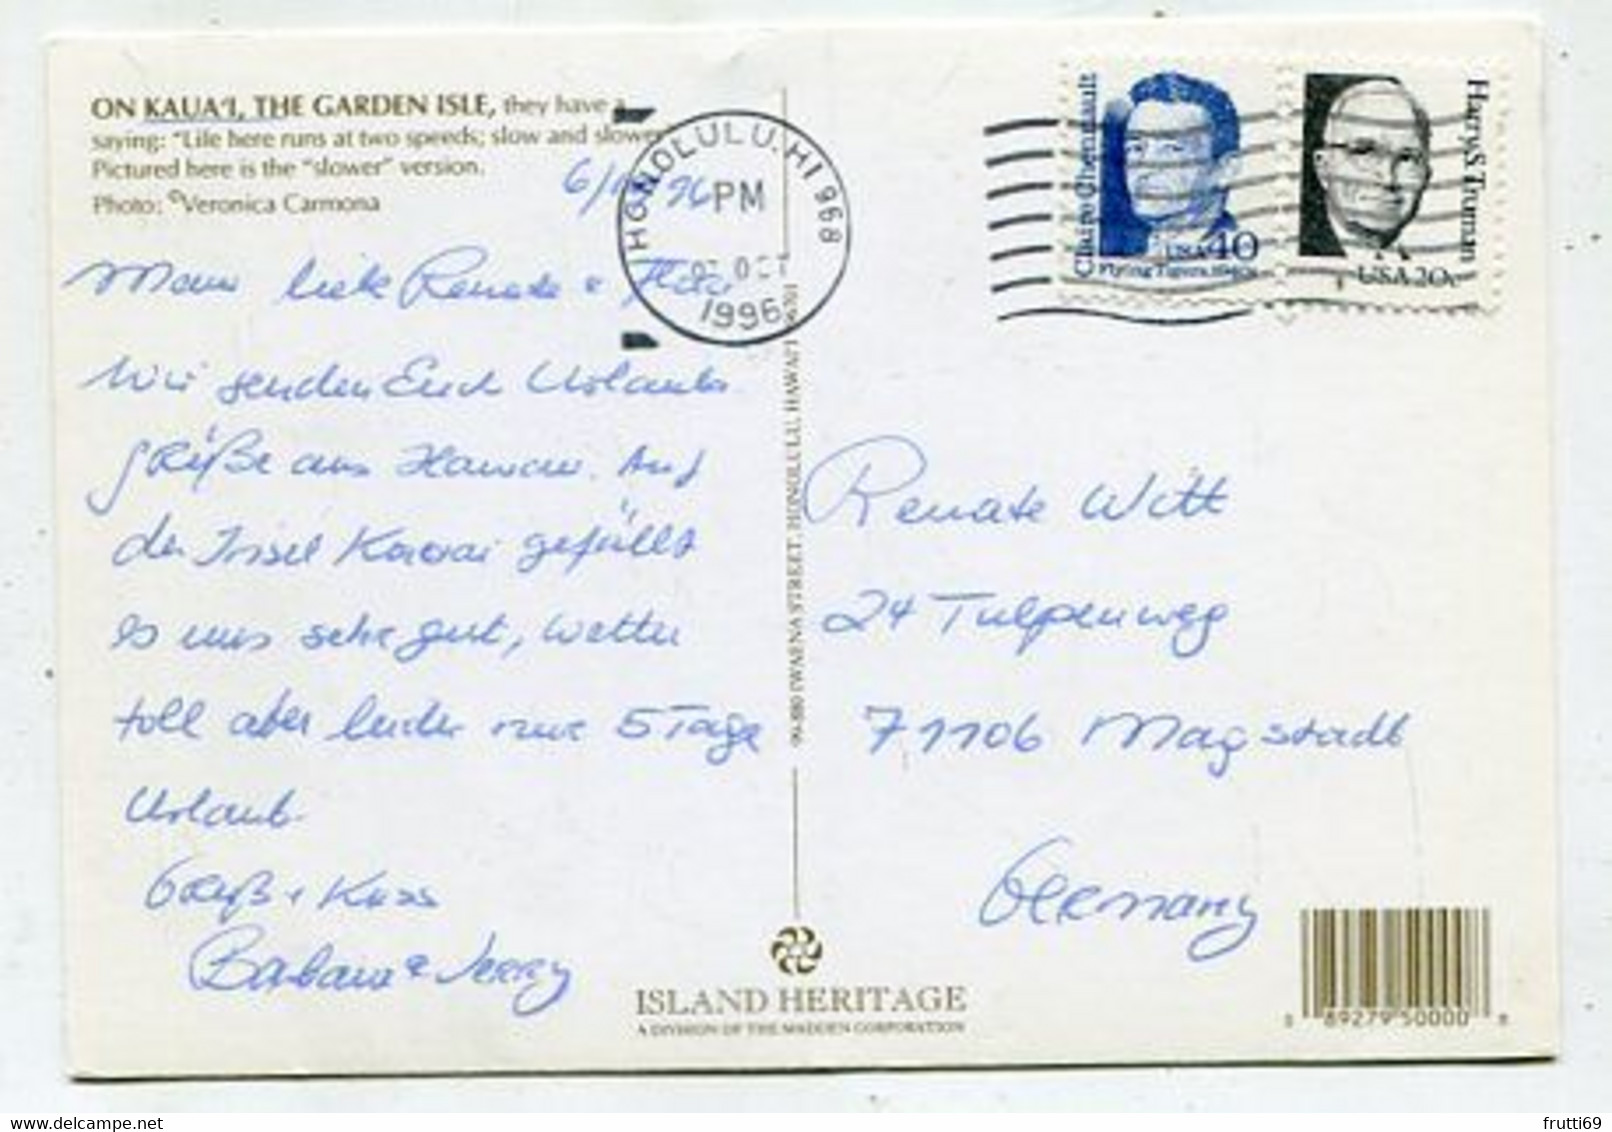 ON KAUA'I, THE GARDEN ISLE, they have a
saying: "Life here runs at two speeds; slow and slower
Pictured here is the "slower" version.
Photo: ©Veronica Carmona
HONOLULU, HI 968
PM
OCT
1996
Claire Chennault
USA 40
Flying Tigers, 1940s
Harry S. Truman
USA 20c
liebe Renate &
Wir senden Euch Urlaubs
grüße aus Hawaii. Auf
der Insel Kauai gefällt
es uns sehr gut, Wetter
toll aber leider nur 5 Tage
Urlaub.
Gruß + Kuss
Barbara & Jerry
99-880 IWAENA STREET, HONOLULU, HAWAI'I 96701
Renate Witt
24 Tulpenweg
71106 Magstadt
Germany
ISLAND HERITAGE
A DIVISION OF THE MADDEN CORPORATION
0 89279 50000 8
frutti69